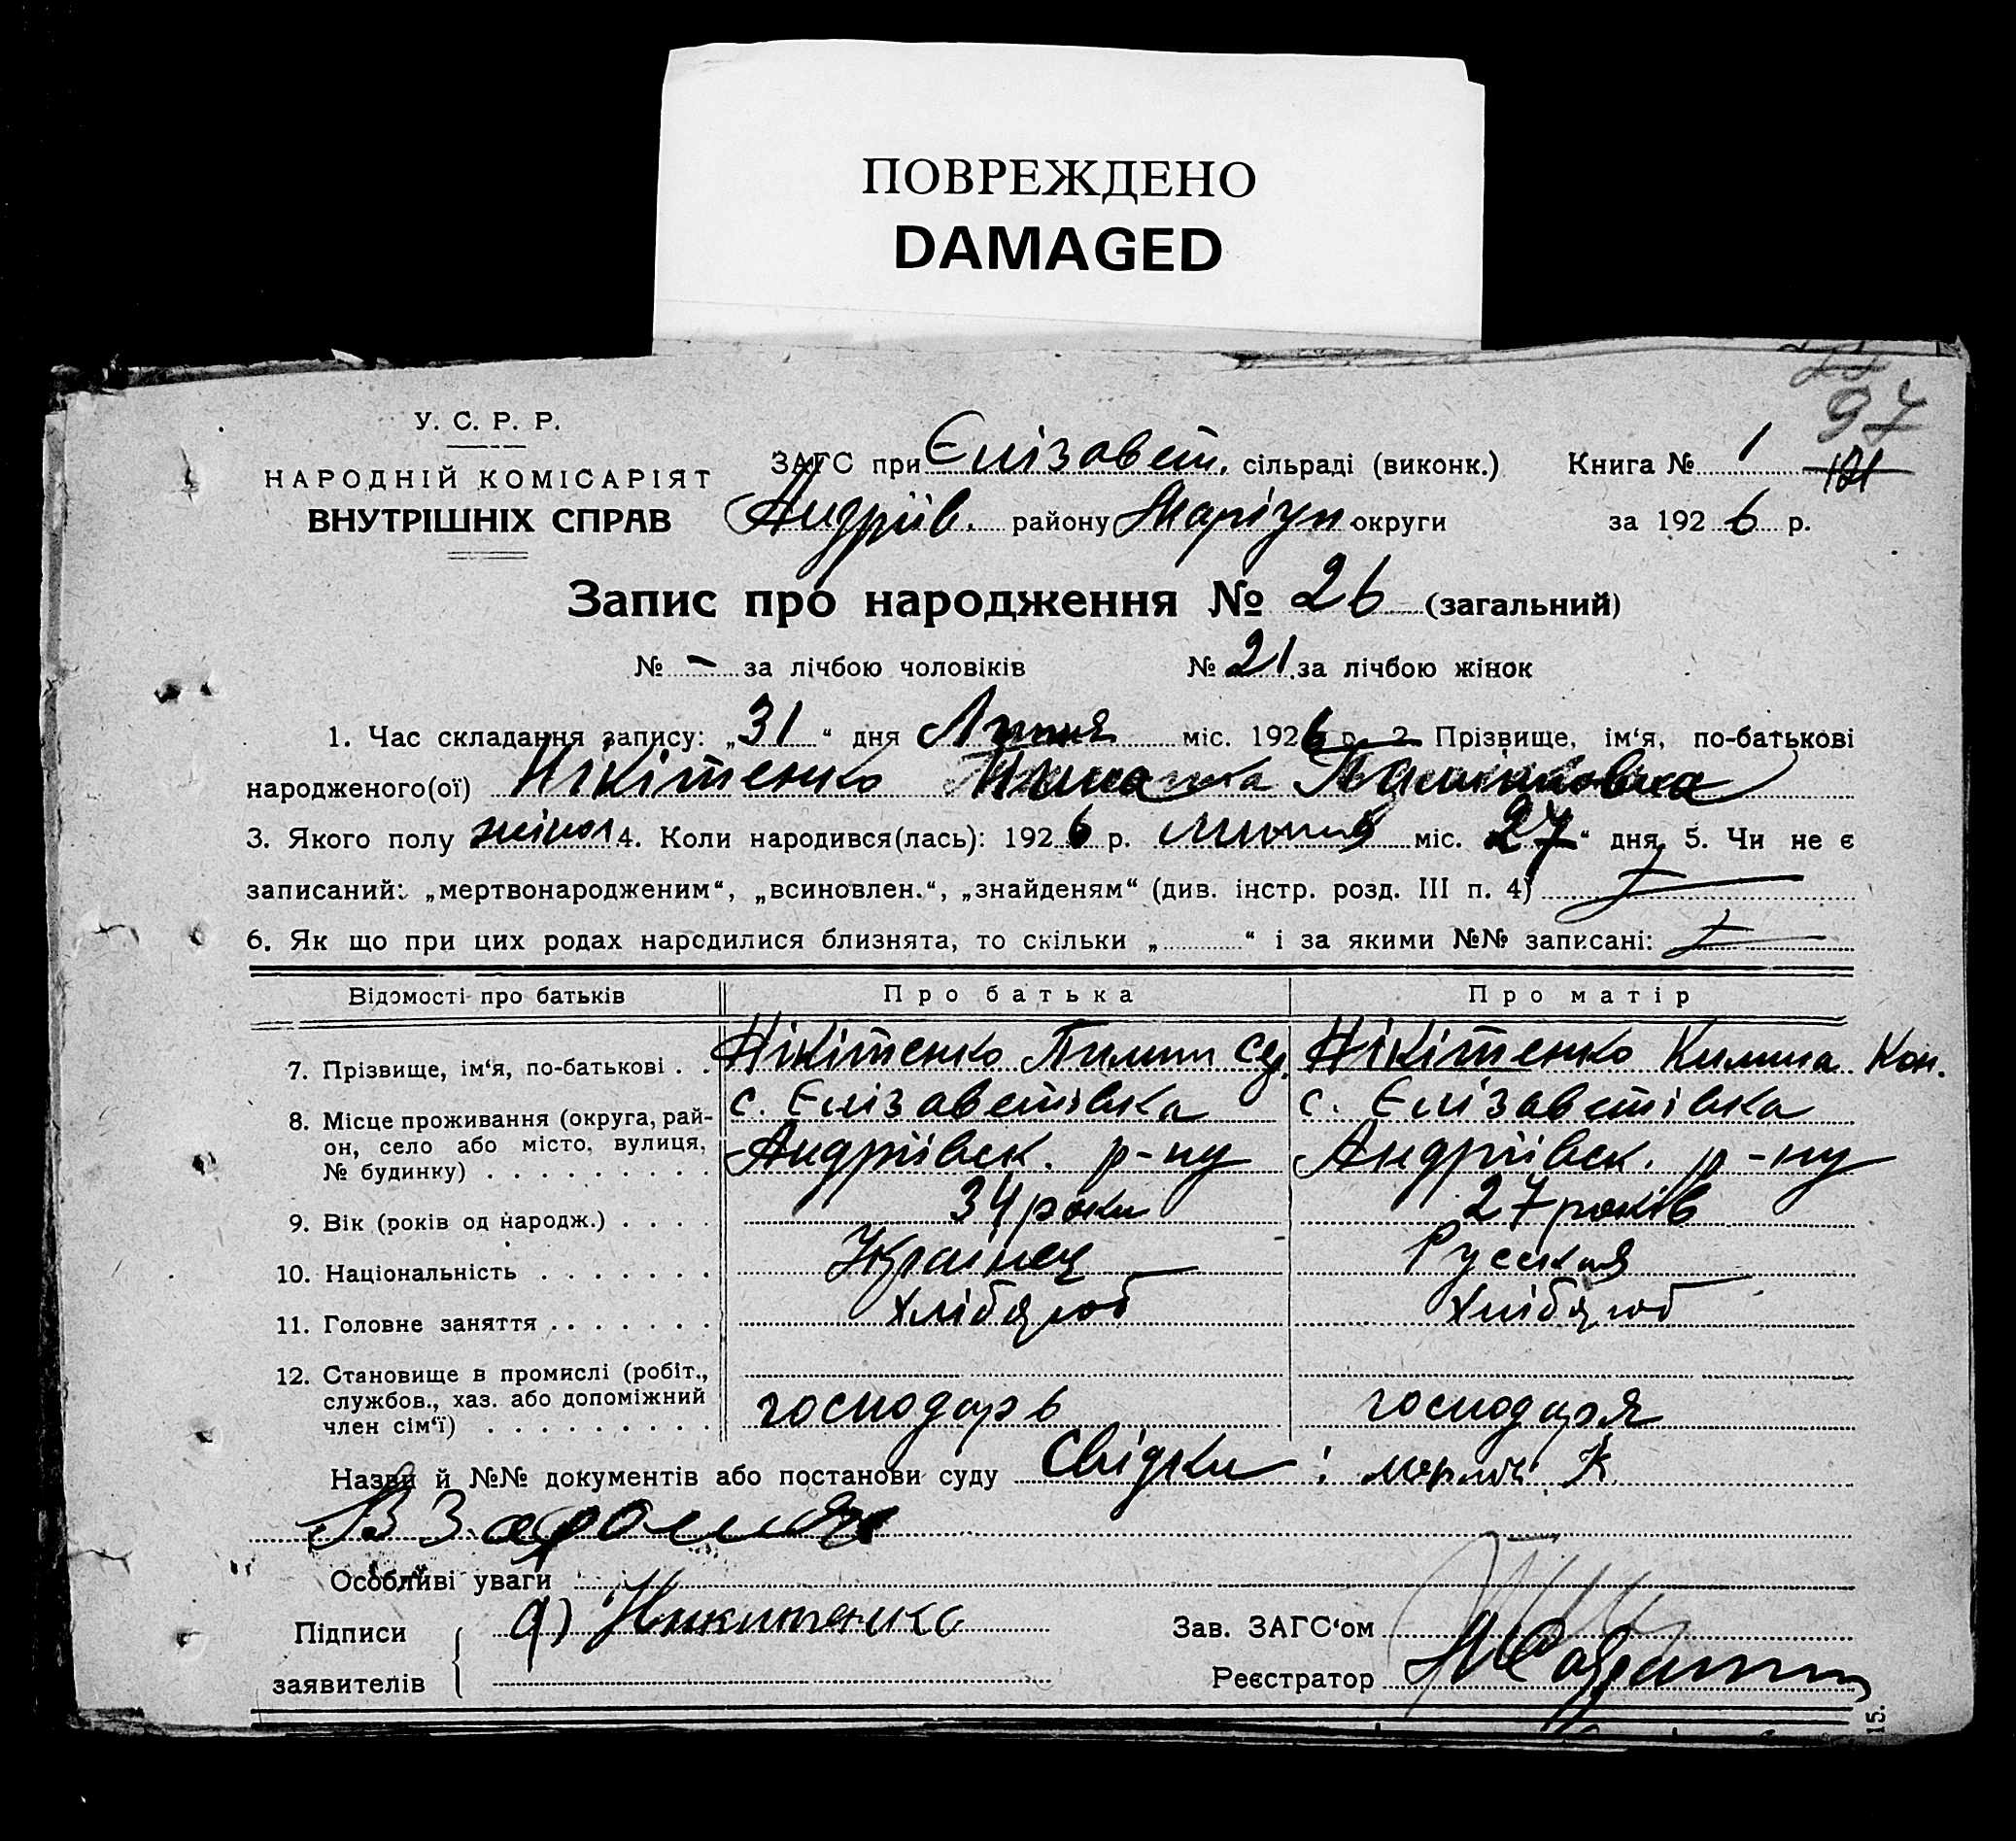 ПОВРЕЖДЕНО
DAMAGED
97
У. С. Р. Р.
НАРОДНІЙ КОМІСАРІЯТ
ВНУТРІШНІХ СПРАВ
ЗАГС при Єлізавет. сільраді (виконк.) Книга № 1 121
Андріїв. району Маріуп округи за 1926 р.
Запис про народження № 26 (загальний)
№ - за лічбою чоловіків № 21 за лічбою жінок
1. Час складання запису: „31“ дня Липня міс. 1926 р. 2. Прізвище, ім‘я, по-батькові
народженого(ої) Нікітенко
3. Якого полу жіноч 4. Коли народився(лась): 1926 р. липня міс. 27“ дня, 5. Чи не є
записаний: „мертвонародженим“, „всиновлен.“, „знайденям“ (див. інстр. розд. III п. 4)
6. Як що при цих родах народилися близнята, то скільки „ “ і за якими №№ записані:
Відомості про батьків Про батька Про матір
7. Прізвище, ім‘я, по-батькові . . Нікітенко Пилип Нікітенко Килина Кон.
8. Місце проживання (округа, рай- с. Єлізаветівка с. Єлізаветівка
он, село або місто, вулиця, Андріївск. р-ну Андріївск. р-ну
№ будинку) . . . . . . . . .
9. Вік (років од народж.) . . . . 34 роки 27 років
10. Національність . . . . . . . Українец Русская
11. Головне заняття . . . . . . . хлібороб хлібороб
12. Становище в промислі (робіт.,
службов., хаз. або допоміжний господарь господаря
член сім‘ї) . . . . . . . . .
Назви й №№ документів або постанови суду Свідки :
Особливі уваги
Підписи Никитенко Зав. ЗАГС‘ом
заявителів Реєстратор
15.